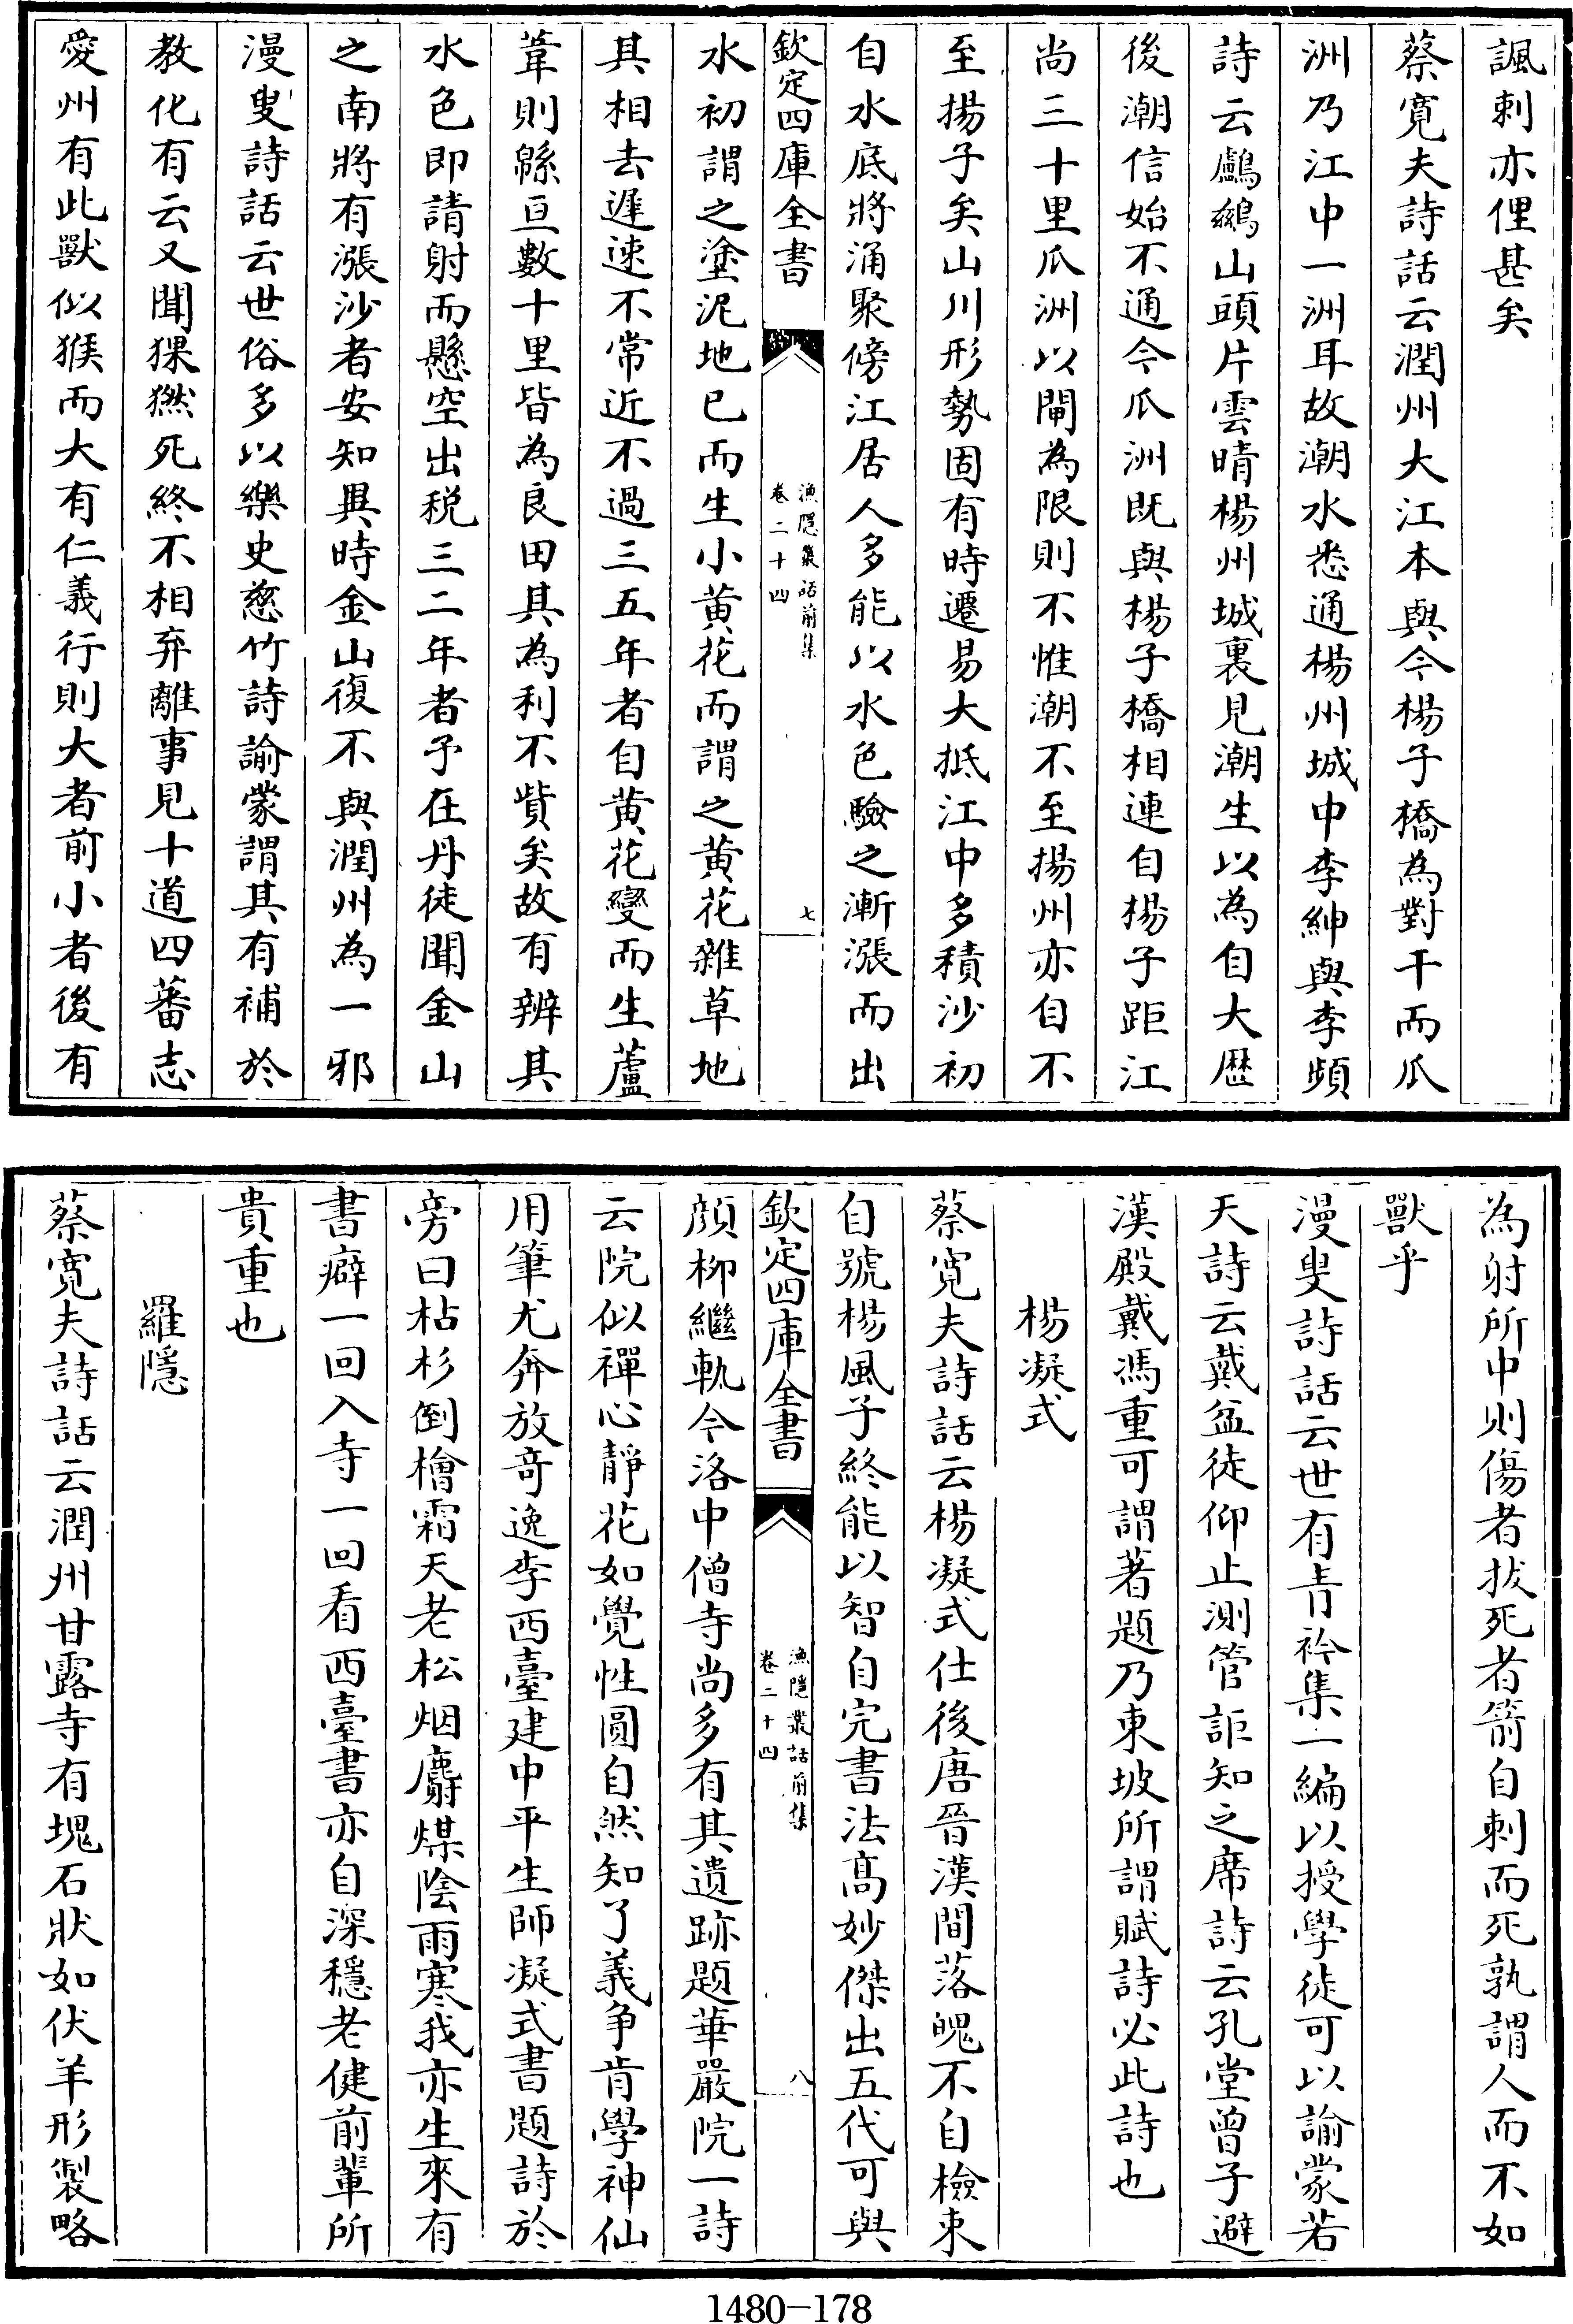 諷刺亦俚甚矣
蔡寛夫詩話云潤州大江本與今楊子橋為對干而瓜
洲乃江中一洲耳故潮水悉通楊州城中李紳與李頻
詩云鸕鷀山頭片雲晴楊州城裏見潮生以為自大厯
後潮信始不通今瓜洲既與楊子橋相連自楊子距江
尚三十里瓜洲以閘為限則不惟潮不至揚州亦自不
至揚子矣山川形勢固有時遷易大抵江中多積沙初
自水底將涌聚傍江居人多能以水色驗之漸漲而出
欽定四庫全書
漁隱叢話前集
卷二十四
七
水初謂之塗泥地已而生小黄花而謂之黄花雜草地
其相去遲速不常近不過三五年者自黄花變而生蘆
葦則緜亘數十里皆為良田其為利不貲矣故有辨其
水色即請射而懸空出税三二年者予在丹徒聞金山
之南將有漲沙者安知異時金山復不與潤州為一邪
漫叟詩話云世俗多以樂史慈竹詩諭蒙謂其有補於
教化有云又聞猓㸐死終不相弃離事見十道四蕃志
愛州有此獸似猴而大有仁義行則大者前小者後有
為射所中則傷者拔死者箭自刺而死孰謂人而不如
獸乎
漫叟詩話云世有青衿集一編以授學徒可以諭蒙若
天詩云戴盆徒仰止測管詎知之席詩云孔堂曾子避
漢殿戴馮重可謂著題乃東坡所謂賦詩必此詩也
楊凝式
蔡寛夫詩話云楊凝式仕後唐晉漢間落魄不自檢束
自號楊風子終能以智自完書法髙妙傑出五代可與
欽定四庫全書
漁隱叢話前集
卷二十四
八
顔柳繼軌今洛中僧寺尚多有其遺跡題華嚴院一詩
云院似禪心靜花如覺性圓自然知了義争肯學神仙
用筆尤奔放竒逸李西臺建中平生師凝式書題詩於
旁曰枯杉倒檜霜天老松烟麝煤陰雨寒我亦生來有
書癖一回入寺一回看西臺書亦自深穩老健前輩所
貴重也
羅隱
蔡寛夫詩話云潤州甘露寺有塊石狀如伏羊形製略
1480—178